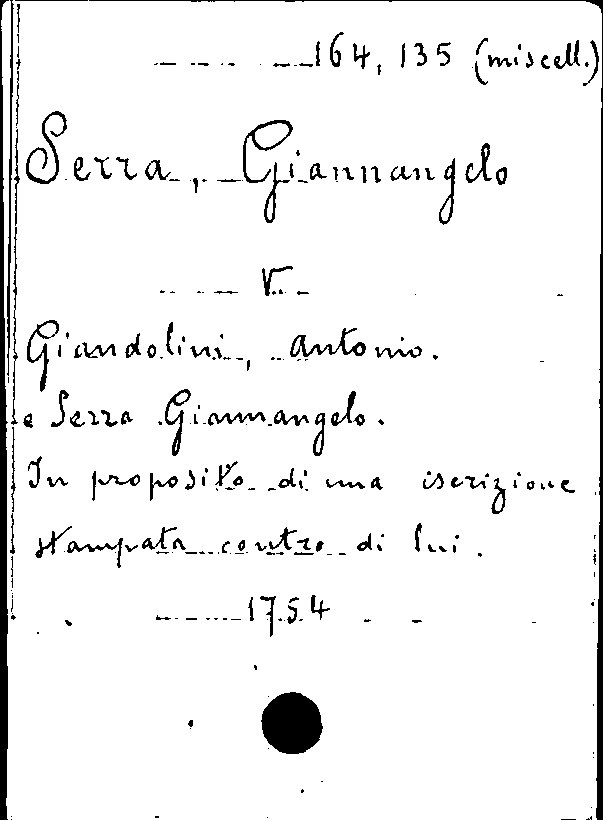 164, 135 (miscell.)
Serra, Giannangelo
V.
Giandolini, Antonio.
e Serra Giannangelo.
In proposito di una iscrizione
stampata contro di lui.
1754